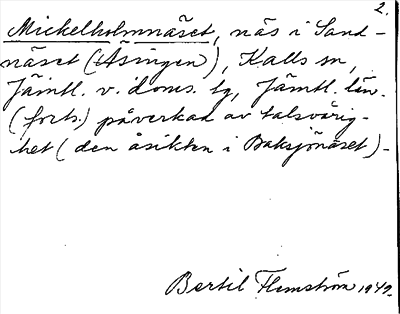 2.
Mickelholmnäset, näs i Sand-
näset (Äsingen), Kalls sn,
Jämtl. v. doms. tg, Jämtl. län.
(forts.) påverkad av talsvårig-
het (den åsikten i Baksjönäset).
Bertil Flemström 1949.